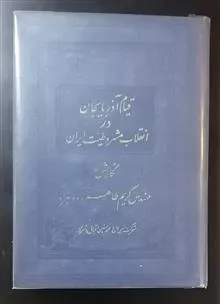 قیام آذربایجان
در
انقلاب مشروطیت ایران
نگارش
مهندس کریم طاهرزاده بهزاد